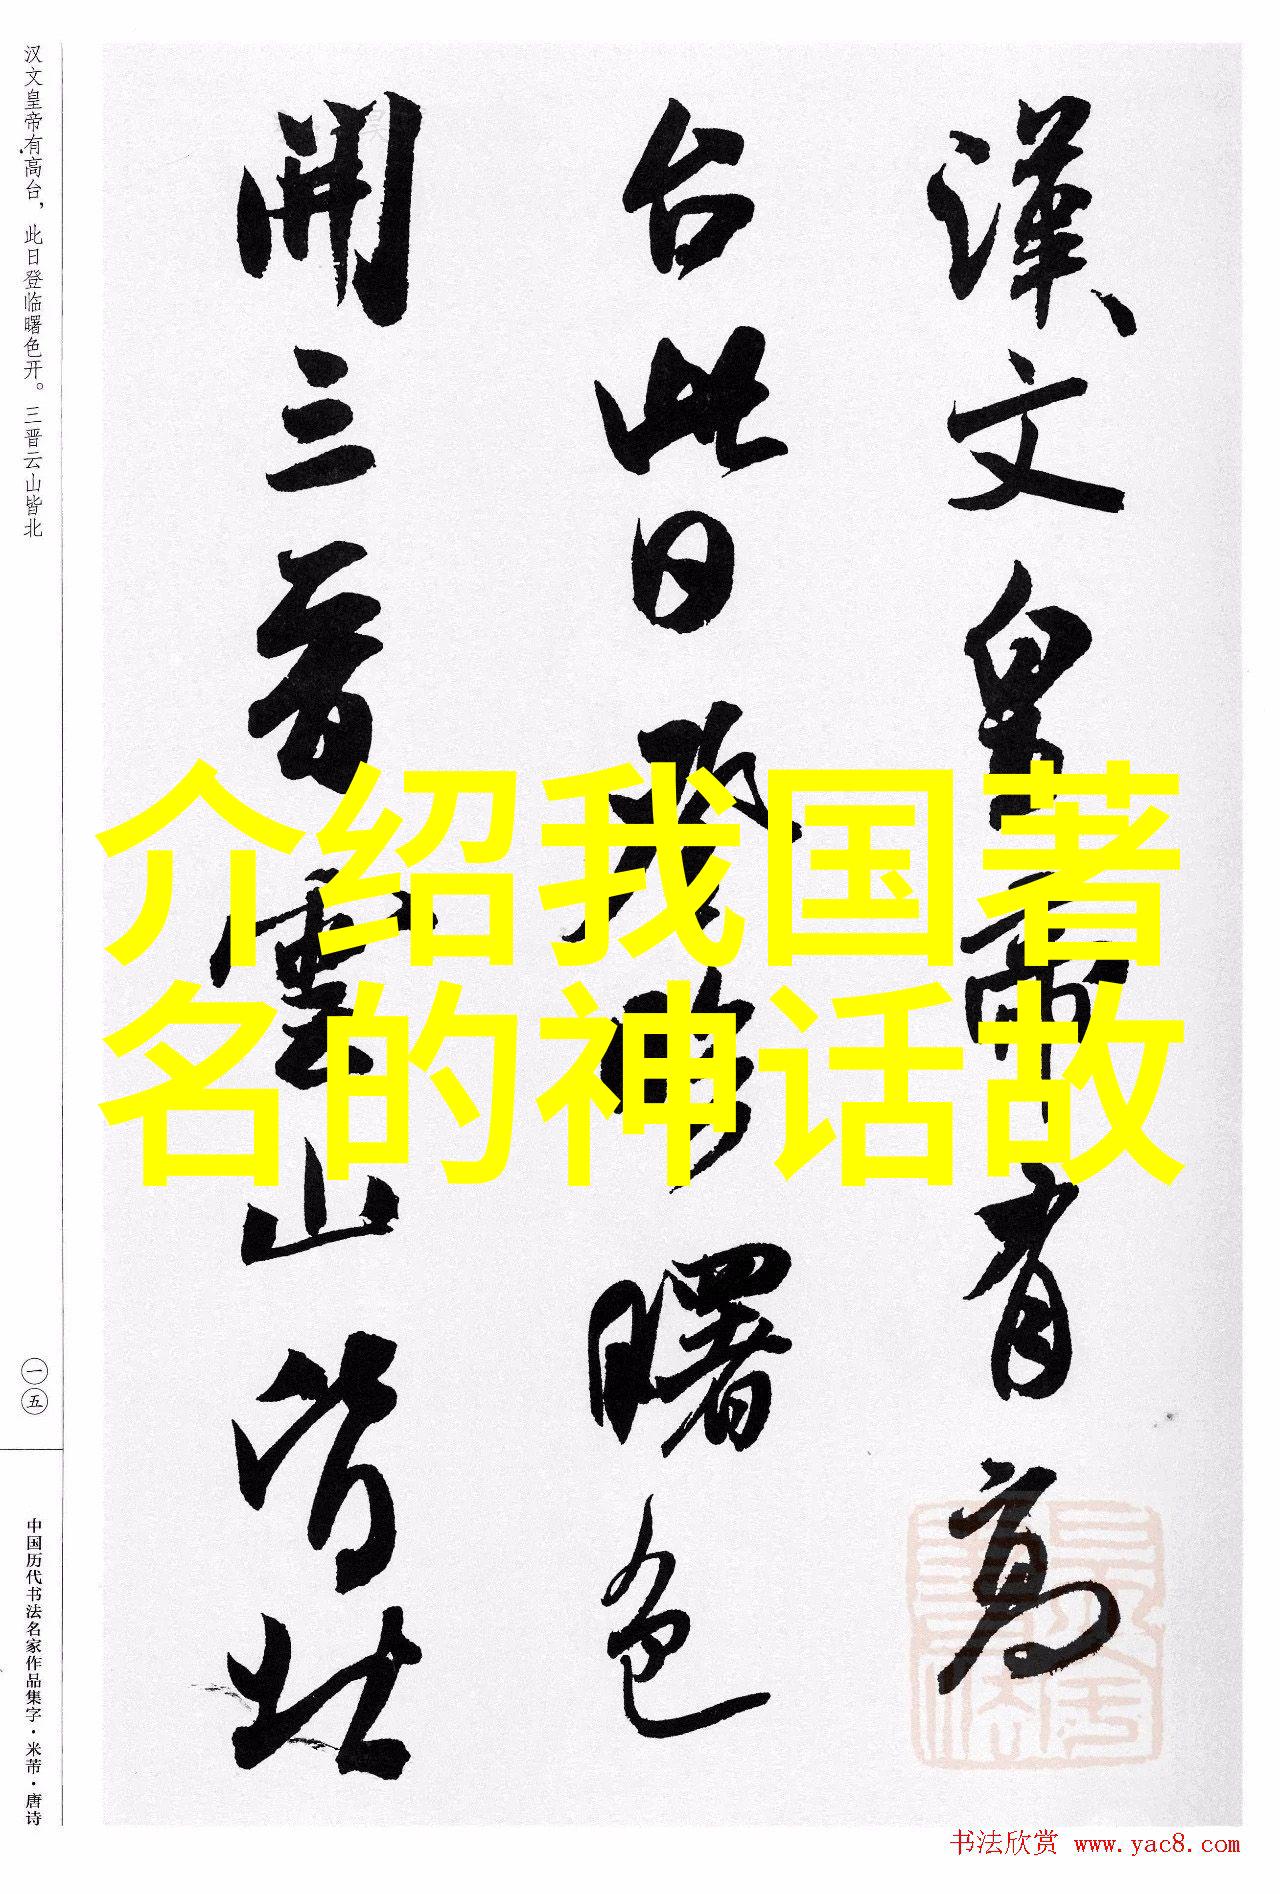 漢文皇帝有高
台此日登臨曙色
開三晉雲山皆北
介绍我国著
名的神话故
汉文皇帝有高台，此日登临曙色开。三晋云山皆北
一五
中国历代书法名家作品集字·米芾·唐诗
书法欣赏 www.yac8.com